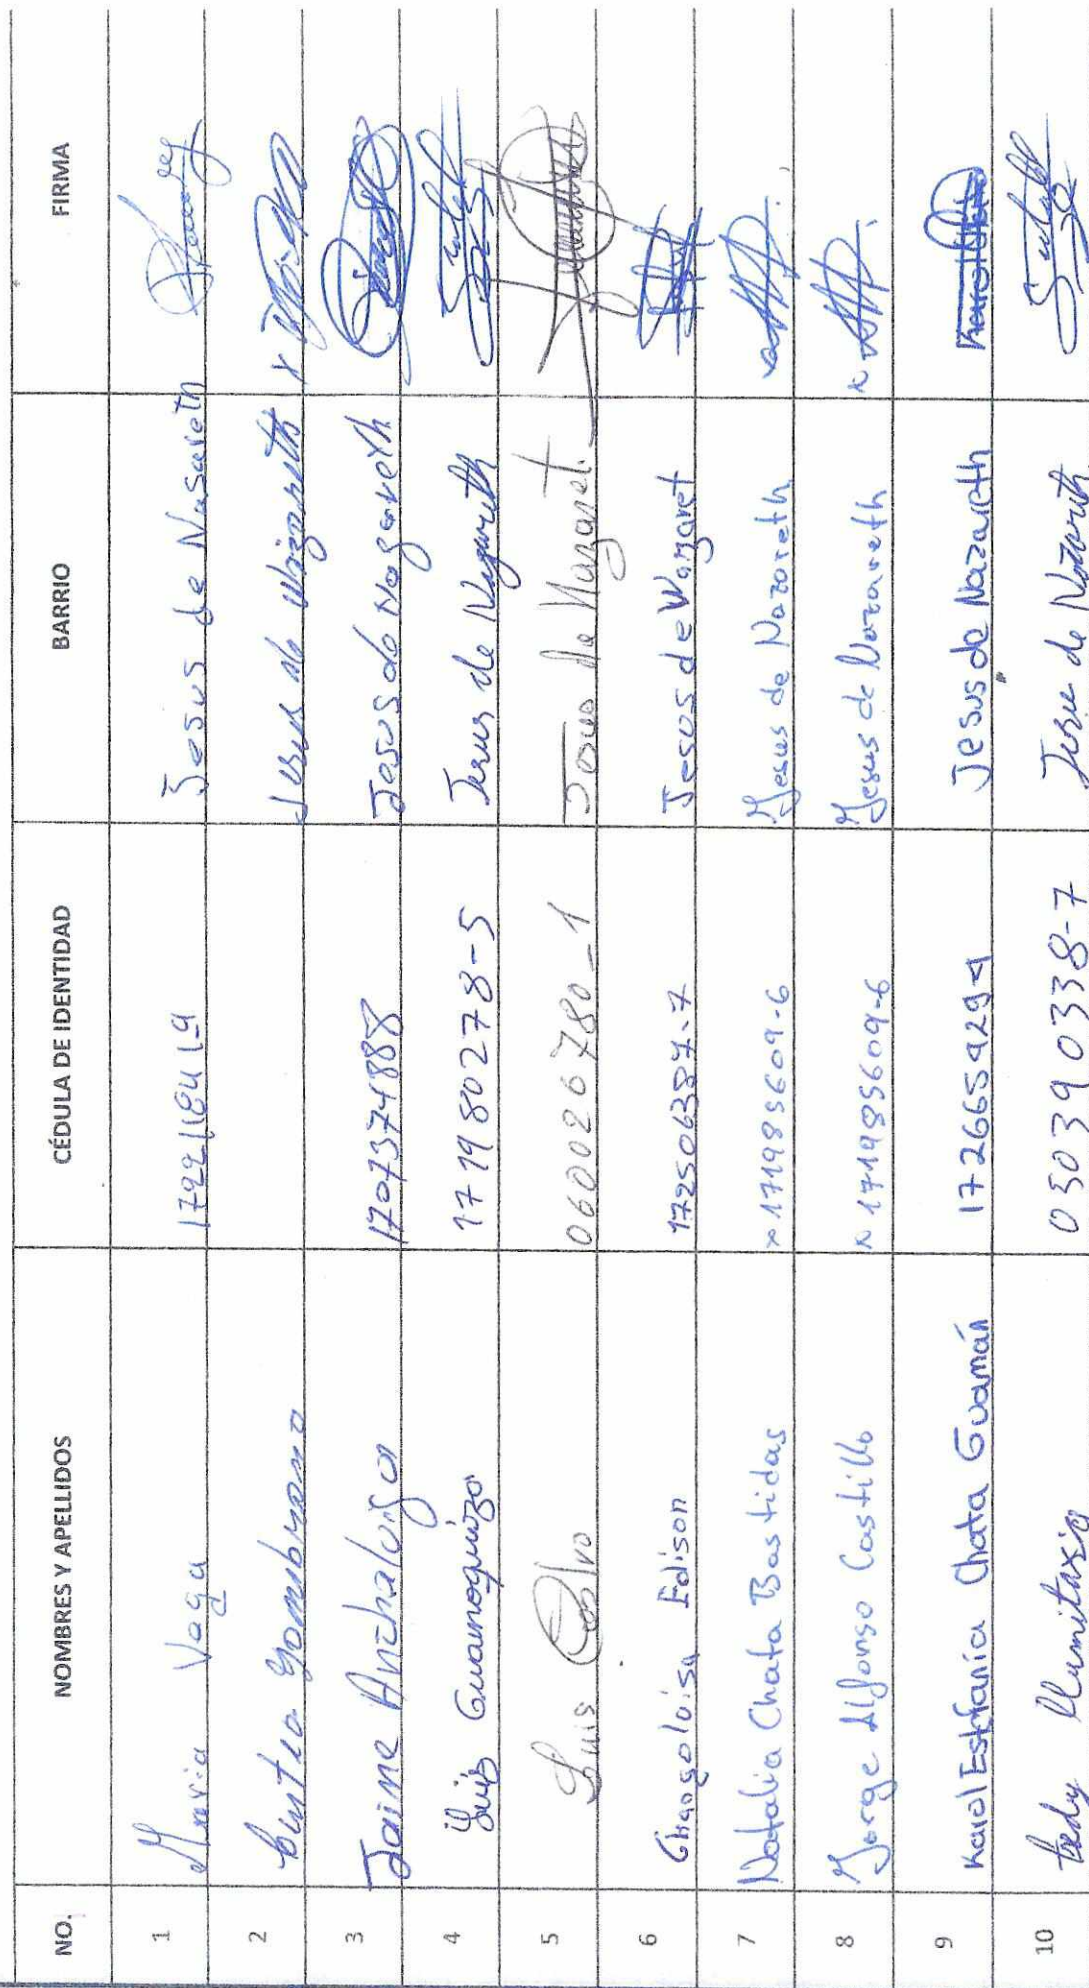 NO. NOMBRES Y APELLIDOS CÉDULA DE IDENTIDAD BARRIO FIRMA
1 Maria Vega Jesus de Nasareth
2 Jesus de Nazareth x
3 Jaime 1707374888 Jesus de Nazareth
4 Luis Guanoquiza 171980278-5 Jesus de Nazareth
5 Luis Calvo 060026780-1 Jesus de Nazaret.
6 Changoluisa Edison 172506387-7 Jesus de Nazaret
7 Natalia Chata Bastidas x 171985609-6 Jesus de Nazareth
8 Jorge Alfonso Castillo x 171985609-6 Jesus de Nazareth x
9 Karol Estefanía Chata Guamán 1726659294 Jesus de Nazareth
10 Llumitaxig 050390338-7 Jesus de Nazareth